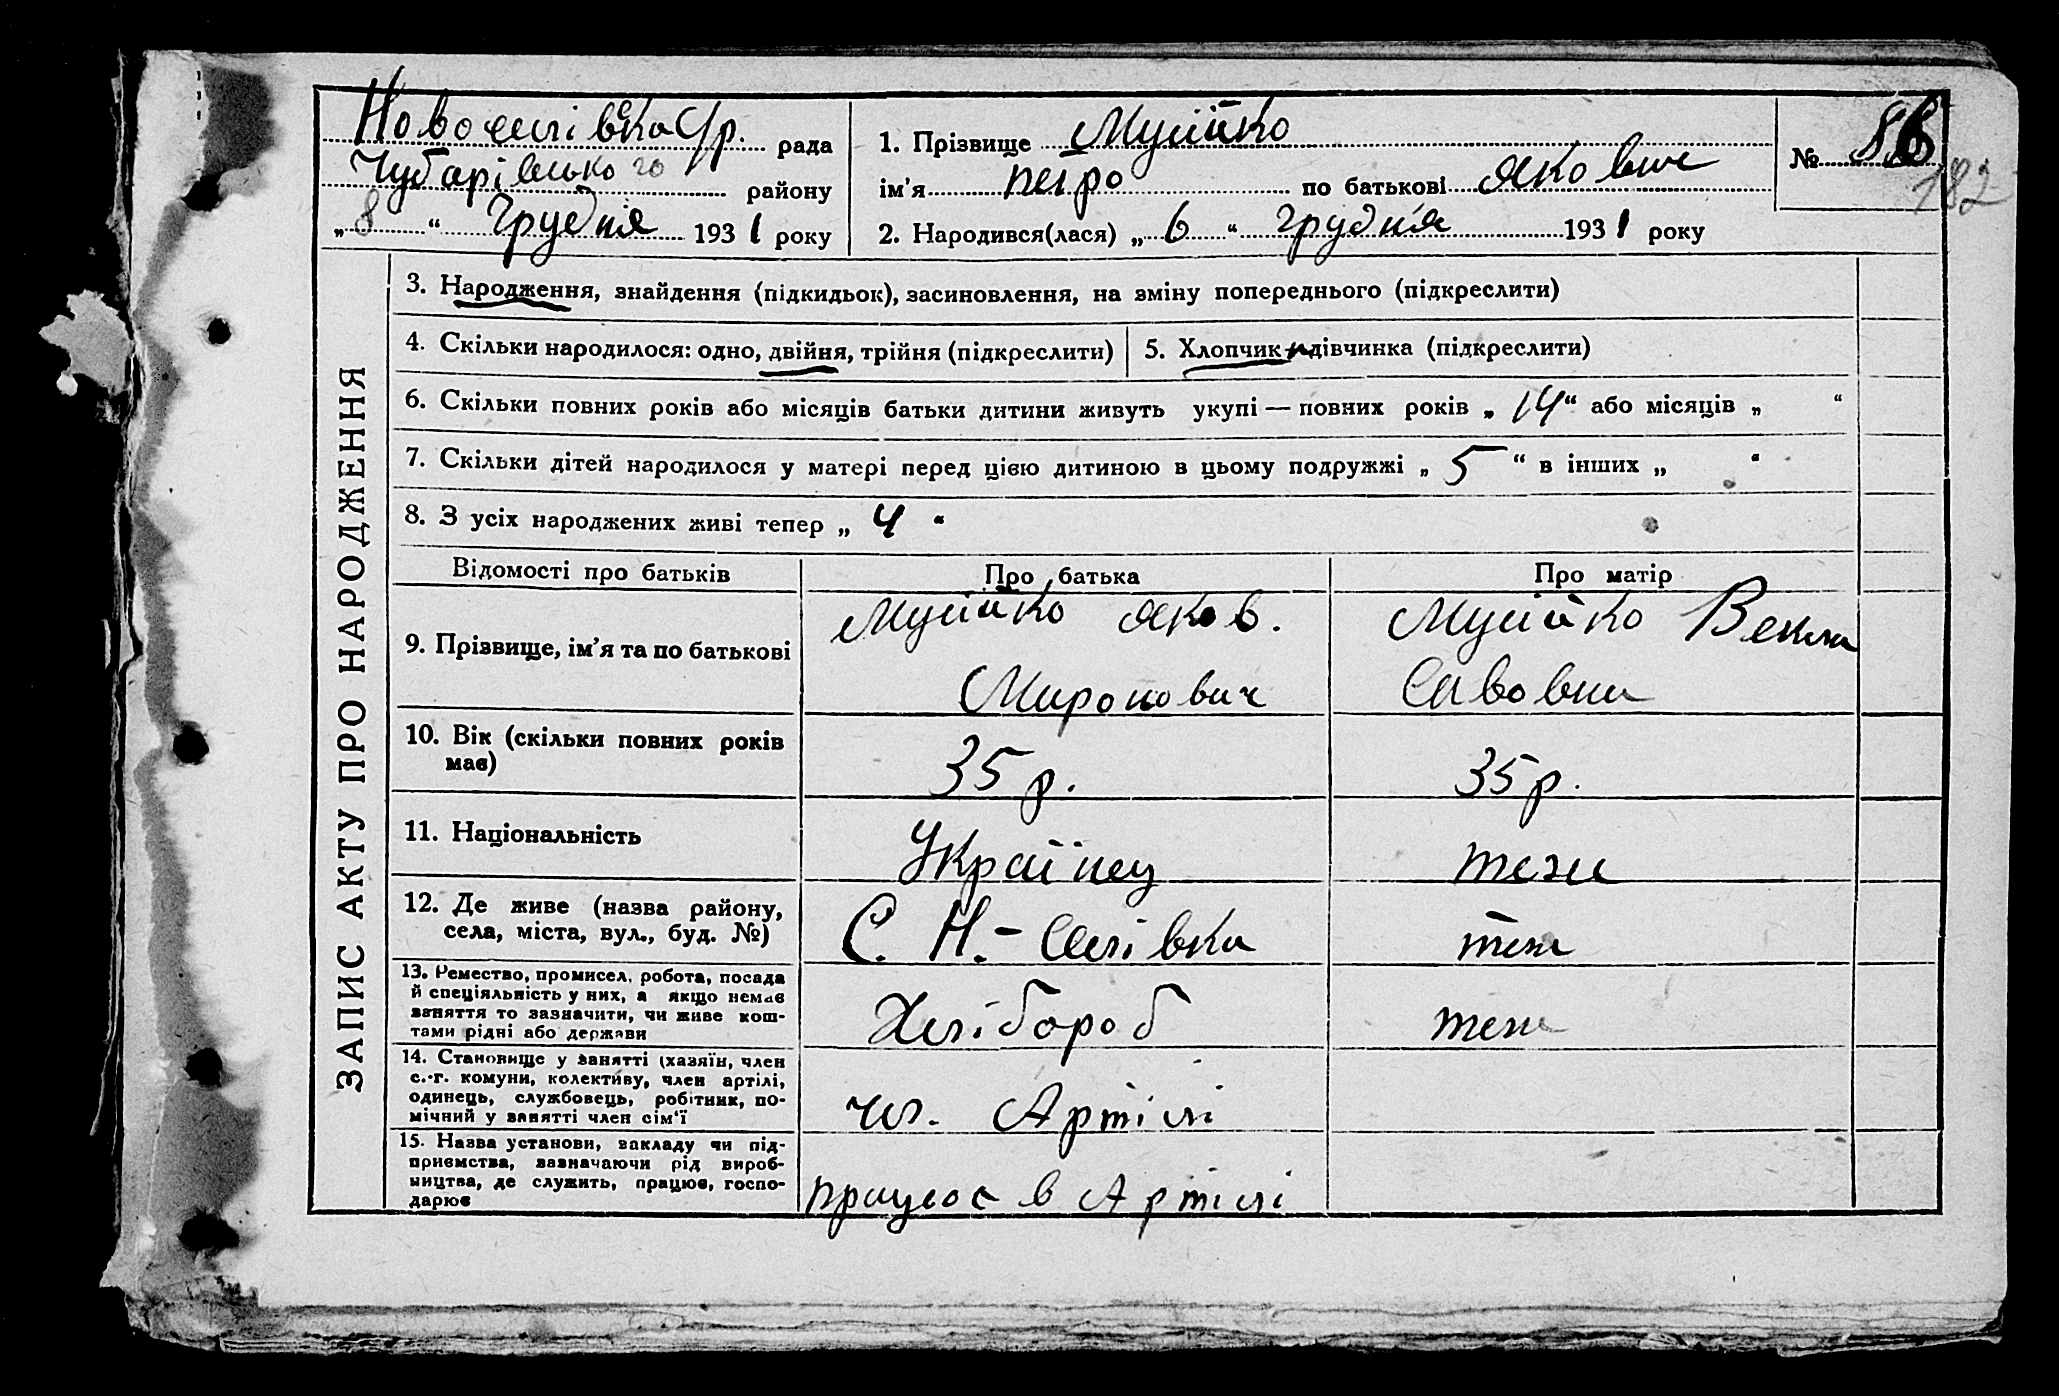 Новоселівка С/р. рада
Чубарівського району
„ 8 “ Грудня 1931 року
1. Прізвище Мусійко
ім’я Петро по батькові Якович
2. Народився(лася) „ 6 “ Грудня 1931 року
№ 86
182
ЗАПИС АКТУ ПРО НАРОДЖЕННЯ
3. Народження, знайдення (підкидьок), засиновлення, на зміну попереднього (підкреслити)
4. Скільки народилося: одно, двійня, трійня (підкреслити)
5. Хлопчик дівчинка (підкреслити)
6. Скільки повних років або місяців батьки дитини живуть укупі — повних років „ 14 “ або місяців „ “
7. Скільки дітей народилося у матері перед цією дитиною в цьому подружжі „ 5 “ в інших „ “
8. З усіх народжених живі тепер „ 4 “
Відомості про батьків
Про батька
Про матір
9. Прізвище, ім’я та по батькові
Мусійко Яков.
Миронович
Мусійко Векла
Савовна
10. Вік (скільки повних років
має)
35 р.
35 р.
11. Національність
Українец
теж
12. Де живе (назва району,
села, міста, вул., буд. №)
С. Н.-Селівка
теж
13. Ремество, промисел, робота, посада
й спеціяльність у них, а якщо немає
заняття то зазначити, чи живе кош-
тами рідні або держави
Хлібороб
теж
14. Становище у занятті (хазяїн, член
с.-г. комуни, колективу, член артілі,
одинець, службовець, робітник, по-
мічний у занятті член сім‘ї
чл. Артілі
15. Назва установи, закладу чи під-
приємства, зазначаючи рід вироб-
ництва, де служить, працює, госпо-
дарює
працює в Артілі